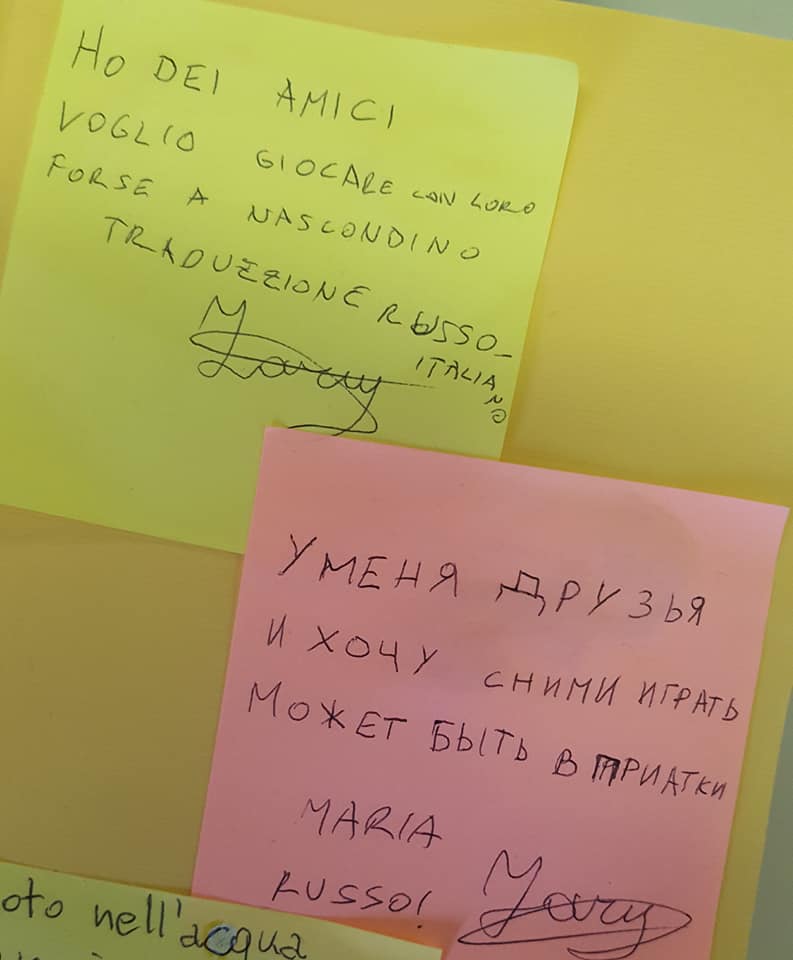 HO DEI AMICI
VOGLIO GIOCARE CON LORO
FORSE A NASCONDINO
TRADUZZIONE RUSSO-
ITALIANO
Mary
У МЕНЯ ДРУЗЬЯ
И ХОЧУ СНИМИ ИГРАТЬ
МОЖЕТ БЫТЬ В ПРИАТКИ
MARIA
RUSSO! Mary
oto nell'acqua